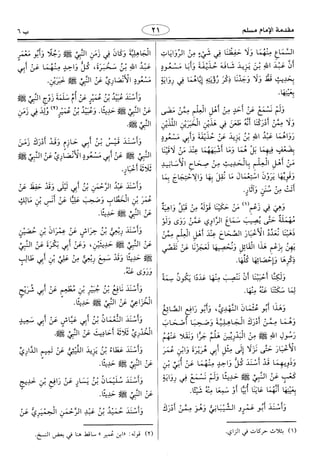 مقدمة الإمام مسلم
٢١
ب ٦
السَّمَاعُ مِنْهُمَا وَلَا حَفِظْنَا فِي شَيْءٍ مِنَ الرِّوَايَاتِ
أَنَّ عَبْدَ اللهِ بْنَ يَزِيدَ شَافَهَ حُذَيْفَةَ وَأَبَا مَسْعُودٍ
بِحَدِيثٍ قَطُّ وَلَا وَجَدْنَا ذِكْرَ رُؤْيَتِهِ إِيَّاهُمَا فِي رِوَايَةٍ
بِعَيْنِهَا.
وَلَمْ نَسْمَعْ عَنْ أَحَدٍ مِنْ أَهْلِ الْعِلْمِ مِمَّنْ مَضَى
وَلَا مِمَّنْ أَدْرَكْنَا أَنَّهُ طَعَنَ فِي هَذَيْنِ الْخَبَرَيْنِ اللَّذَيْنِ
رَوَاهُمَا عَبْدُ اللهِ بْنُ يَزِيدَ عَنْ حُذَيْفَةَ وَأَبِي مَسْعُودٍ
بِضَعْفٍ فِيهِمَا بَلْ هُمَا وَمَا أَشْبَهَهُمَا عِنْدَ مَنْ لَاقَيْنَا
مِنْ أَهْلِ الْعِلْمِ بِالْحَدِيثِ مِنْ صِحَاحِ الْأَسَانِيدِ
وَقَوِيِّهَا يَرَوْنَ اسْتِعْمَالَ مَا نُقِلَ بِهَا وَالِاحْتِجَاجَ بِمَا
أَتَتْ مِنْ سُنَنٍ وَآثَارٍ.
وَهِيَ فِي زَعْمِ(١) مَنْ حَكَيْنَا قَوْلَهُ مِنْ قَبْلُ وَاهِيَةٌ
مُهْمَلَةٌ حَتَّى يُصِيبَ سَمَاعَ الرَّاوِي عَمَّنْ رَوَى وَلَوْ
ذَهَبْنَا نُعَدِّدُ الْأَخْبَارَ الصِّحَاحَ عِنْدَ أَهْلِ الْعِلْمِ مِمَّنْ
يَهِنُ بِزَعْمِ هَذَا الْقَائِلِ وَنُحْصِيهَا لَعَجَزْنَا عَنْ تَقَصِّي
ذِكْرِهَا وَإِحْصَائِهَا كُلِّهَا.
وَلَكِنَّا أَحْبَبْنَا أَنْ نَنْصِبَ مِنْهَا عَدَدًا يَكُونُ سِمَةً
لِمَا سَكَتْنَا عَنْهُ مِنْهَا.
وَهَذَا أَبُو عُثْمَانَ النَّهْدِيُّ، وَأَبُو رَافِعٍ الصَّائِغُ
وَهُمَا مِمَّنْ أَدْرَكَ الْجَاهِلِيَّةَ وَصَحِبَا أَصْحَابَ
رَسُولِ اللهِ ﷺ مِنَ الْبَدْرِيِّينَ هَلُمَّ جَرًّا وَنَقَلَا عَنْهُمُ
الْأَخْبَارَ حَتَّى نَزَلَا إِلَى مِثْلِ أَبِي هُرَيْرَةَ وَابْنِ عُمَرَ
وَذَوِيهِمَا قَدْ أَسْنَدَ كُلُّ وَاحِدٍ مِنْهُمَا عَنْ أُبَيِّ بْنِ
كَعْبٍ عَنِ النَّبِيِّ ﷺ حَدِيثًا وَلَمْ نَسْمَعْ فِي رِوَايَةٍ
بِعَيْنِهَا أَنَّهُمَا عَايَنَا أُبَيًّا أَوْ سَمِعَا مِنْهُ شَيْئًا.
وَأَسْنَدَ أَبُو عَمْرٍو الشَّيْبَانِيُّ وَهُوَ مِمَّنْ أَدْرَكَ
(١) بثلاث حركات في الزاي.
الْجَاهِلِيَّةَ وَكَانَ فِي زَمَنِ النَّبِيِّ ﷺ رَجُلًا وَأَبُو مَعْمَرٍ
عَبْدُ اللهِ بْنُ سَخْبَرَةَ، كُلُّ وَاحِدٍ مِنْهُمَا عَنْ أَبِي
مَسْعُودٍ الْأَنْصَارِيِّ عَنِ النَّبِيِّ ﷺ خَبَرَيْنِ.
وَأَسْنَدَ عُبَيْدُ بْنُ عُمَيْرٍ عَنْ أُمِّ سَلَمَةَ زَوْجِ النَّبِيِّ ﷺ
عَنِ النَّبِيِّ ﷺ حَدِيثًا، وَعُبَيْدُ بْنُ عُمَيْرٍ(٢) وُلِدَ فِي زَمَنِ
النَّبِيِّ ﷺ.
وَأَسْنَدَ قَيْسُ بْنُ أَبِي حَازِمٍ وَقَدْ أَدْرَكَ زَمَنَ
النَّبِيِّ ﷺ عَنْ أَبِي مَسْعُودٍ الْأَنْصَارِيِّ عَنِ النَّبِيِّ ﷺ
ثَلَاثَةَ أَخْبَارٍ.
وَأَسْنَدَ عَبْدُ الرَّحْمَنِ بْنُ أَبِي لَيْلَى وَقَدْ حَفِظَ عَنْ
عُمَرَ بْنِ الْخَطَّابِ وَصَحِبَ عَلِيًّا عَنْ أَنَسِ بْنِ مَالِكٍ
عَنِ النَّبِيِّ ﷺ حَدِيثًا.
وَأَسْنَدَ رِبْعِيُّ بْنُ حِرَاشٍ عَنْ عِمْرَانَ بْنِ حُصَيْنٍ
عَنِ النَّبِيِّ ﷺ حَدِيثَيْنِ، وَعَنْ أَبِي بَكْرَةَ عَنِ النَّبِيِّ
ﷺ حَدِيثًا وَقَدْ سَمِعَ رِبْعِيٌّ مِنْ عَلِيِّ بْنِ أَبِي طَالِبٍ
وَرَوَى عَنْهُ.
وَأَسْنَدَ نَافِعُ بْنُ جُبَيْرِ بْنِ مُطْعِمٍ عَنْ أَبِي شُرَيْحٍ
الْخُزَاعِيِّ عَنِ النَّبِيِّ ﷺ حَدِيثًا.
وَأَسْنَدَ النُّعْمَانُ بْنُ أَبِي عَيَّاشٍ عَنْ أَبِي سَعِيدٍ
الْخُدْرِيِّ ثَلَاثَةَ أَحَادِيثَ عَنِ النَّبِيِّ ﷺ.
وَأَسْنَدَ عَطَاءُ بْنُ يَزِيدَ اللَّيْثِيُّ عَنْ تَمِيمٍ الدَّارِيِّ
عَنِ النَّبِيِّ ﷺ حَدِيثًا.
وَأَسْنَدَ سُلَيْمَانُ بْنُ يَسَارٍ عَنْ رَافِعِ بْنِ خَدِيجٍ
عَنِ النَّبِيِّ ﷺ حَدِيثًا.
وَأَسْنَدَ حُمَيْدُ بْنُ عَبْدِ الرَّحْمَنِ الْحِمْيَرِيُّ عَنْ
(٢) قوله: «ابن عمير» ساقط هنا في بعض النسخ.